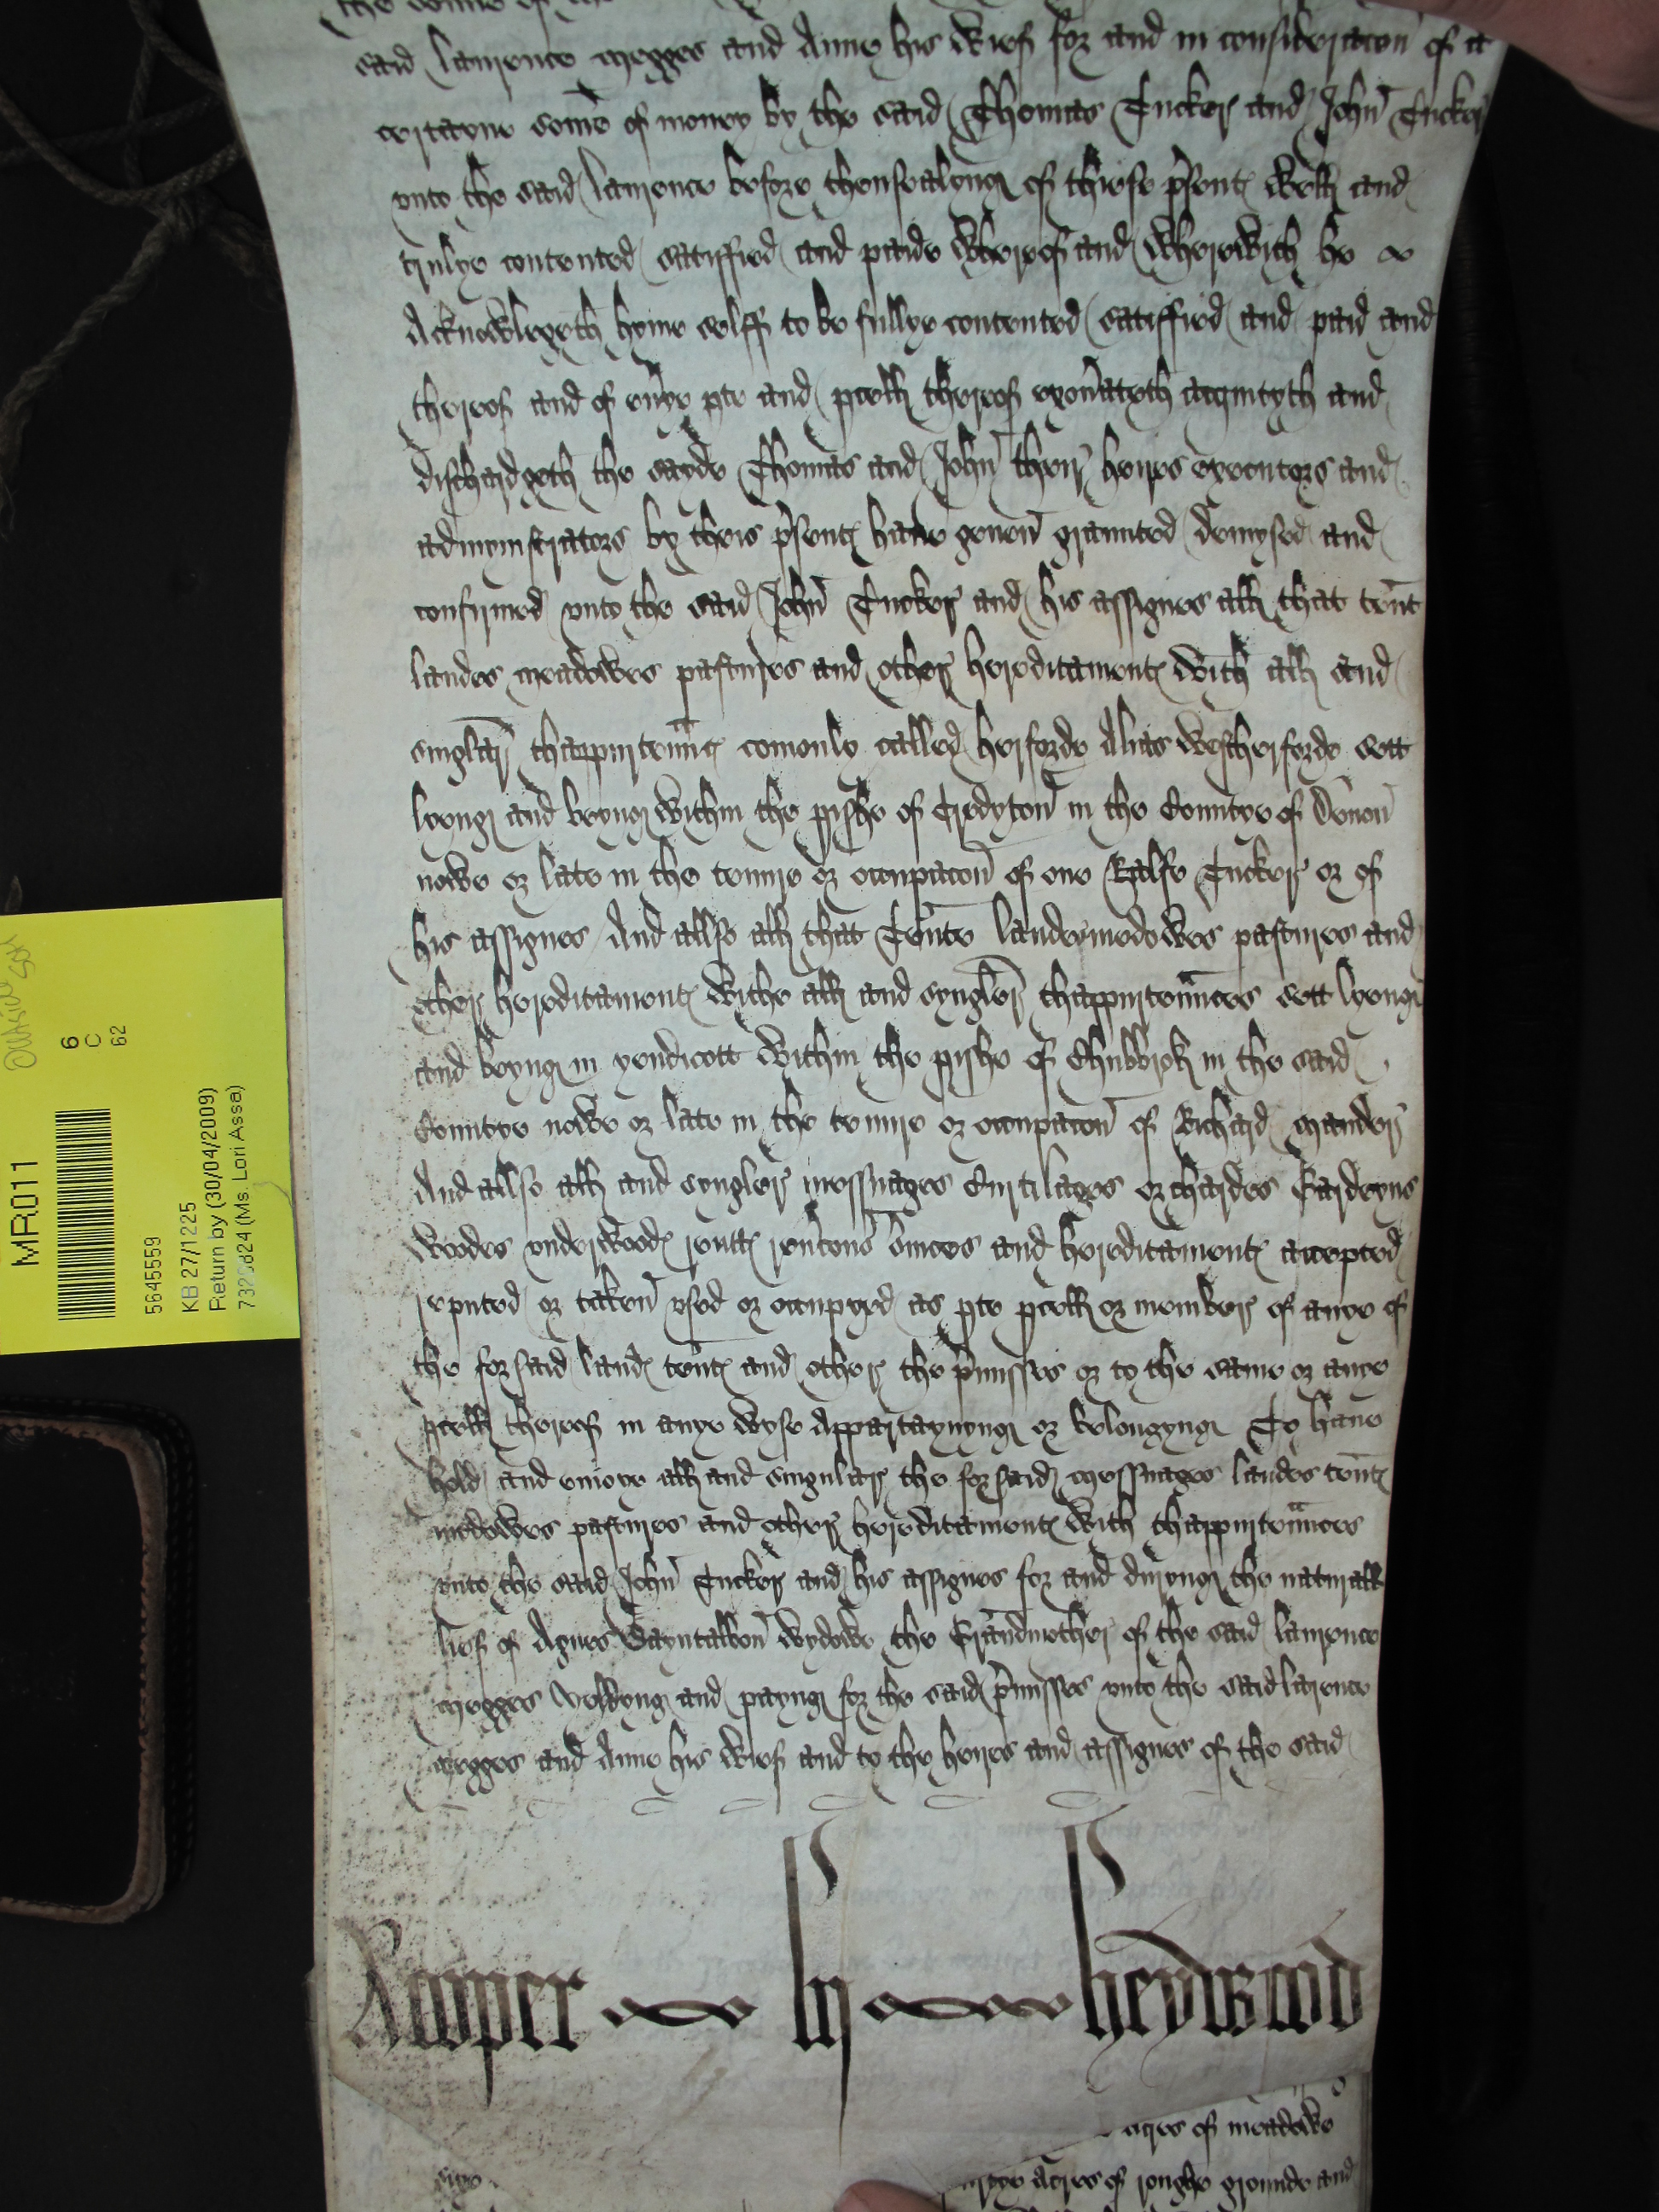 said laurence megges and Anne his wief for and in consideracon of a
certayne some of money by the said Thomas Tucker and John Tucker
vnto the said laurence before thensealyng of thiese psent well and
trulye contented satisfied and paide whereof and wherewith he
Acknowlegeth hyme selff to be fullye contented satisfied and paid and
thereof and of euye pte and pcell thereof exonateth acquityth and
dischardgeth the sayde Thomas and John their heires executors and
admynistrators by theis psent haue geuen graunted demysed and
confirmed vnto the said John Tucker and his assignes all that tent
landes meadowes pastures and other hereditament with all and
singlar thappurtennc comonly called herforde Alias Westherforde sett
lyeng and beyng within the pishe of Credyton in the Countye of Deuon
nowe or late in the tenure or occupacon of one Ralfe Tucker or of
his assignes And allso all that Tente landes medowes pastures and
other hereditament withe all and syngler thappurtennces sett lyeng
and beyng in yendicott within the pishe of Chubbrok in the said
Countye nowe or late in the tenure or occupacon of Richard maunder
And allso all and syngler messuages Curtilages orchardes Gardeyns
woodes vnderwood rentt reucons suices and hereditament accepted
reputed or taken vsed or occupyed as pte pcell or member of anye of
the forsaid land tent and other the pmisses or to the same or anye
pcell thereof in anye wyse Appartaynyng or belongyng To haue
hold and enioye all and singular the forsaid messuages landes tent
medowes pastures and other hereditament with thappurtennces
vnto the said John Tucker and his assignes for and duryng the naturall
lief of Agnes Sayntalbon wydowe the Grandmother of the said laurence
megges yeldyng and payng for the said pmisses vnto the said laurence
megges and Anne his wief and to the heires and assignes of the said
Rooper lij heydwood
acres of meadowe
Acres of roughe grounde and
MR011
6
C
62
5645559
KB 27/1225
Return by (30/04/2009)
(Ms. Lori Assa)